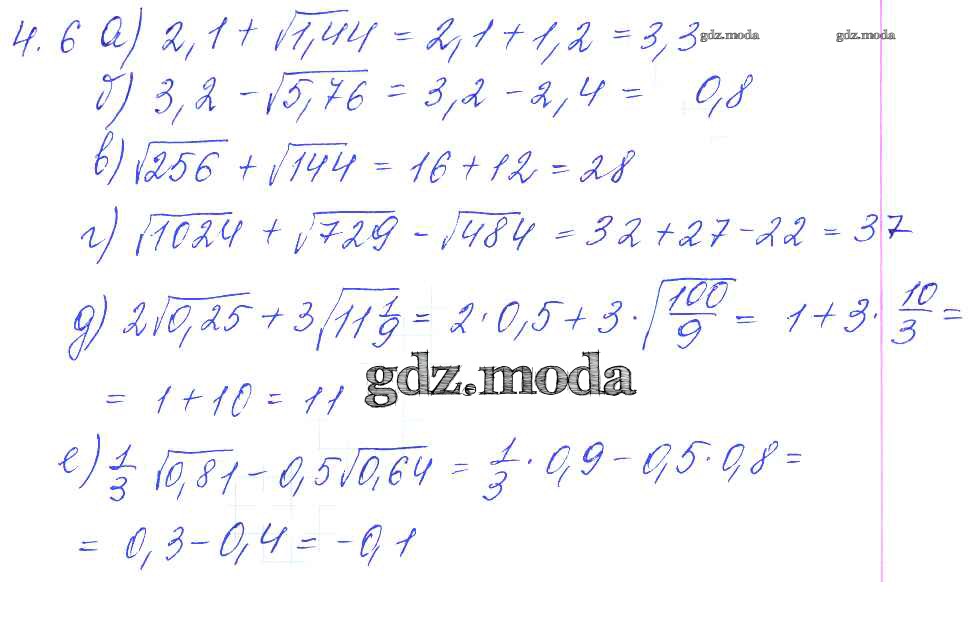 4.6 а) 2,1 + √1,44 = 2,1 + 1,2 = 3,3 gdz.moda gdz.moda
б) 3,2 − √5,76 = 3,2 − 2,4 = 0,8
в) √256 + √144 = 16 + 12 = 28
г) √1024 + √729 − √484 = 32 + 27 − 22 = 37
д) 2√0,25 + 3√11 1/9 = 2 · 0,5 + 3 · √100/9 = 1 + 3 · 10/3 =
= 1 + 10 = 11
gdz.moda
е) 1/3 √0,81 − 0,5√0,64 = 1/3 · 0,9 − 0,5 · 0,8 =
= 0,3 − 0,4 = −0,1